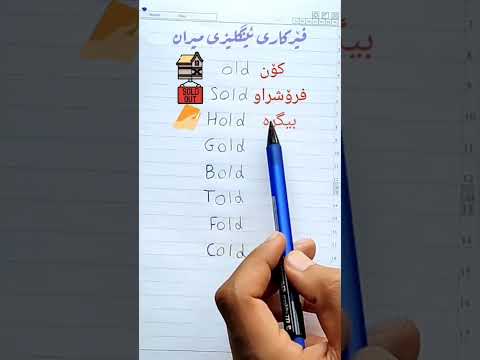 فێرکاری ئینگلیزی میران
old کۆن
SOLD OUT
Sold فرۆشراو
Hold بیگرە
Gold
Bold
Told
Fold
Cold